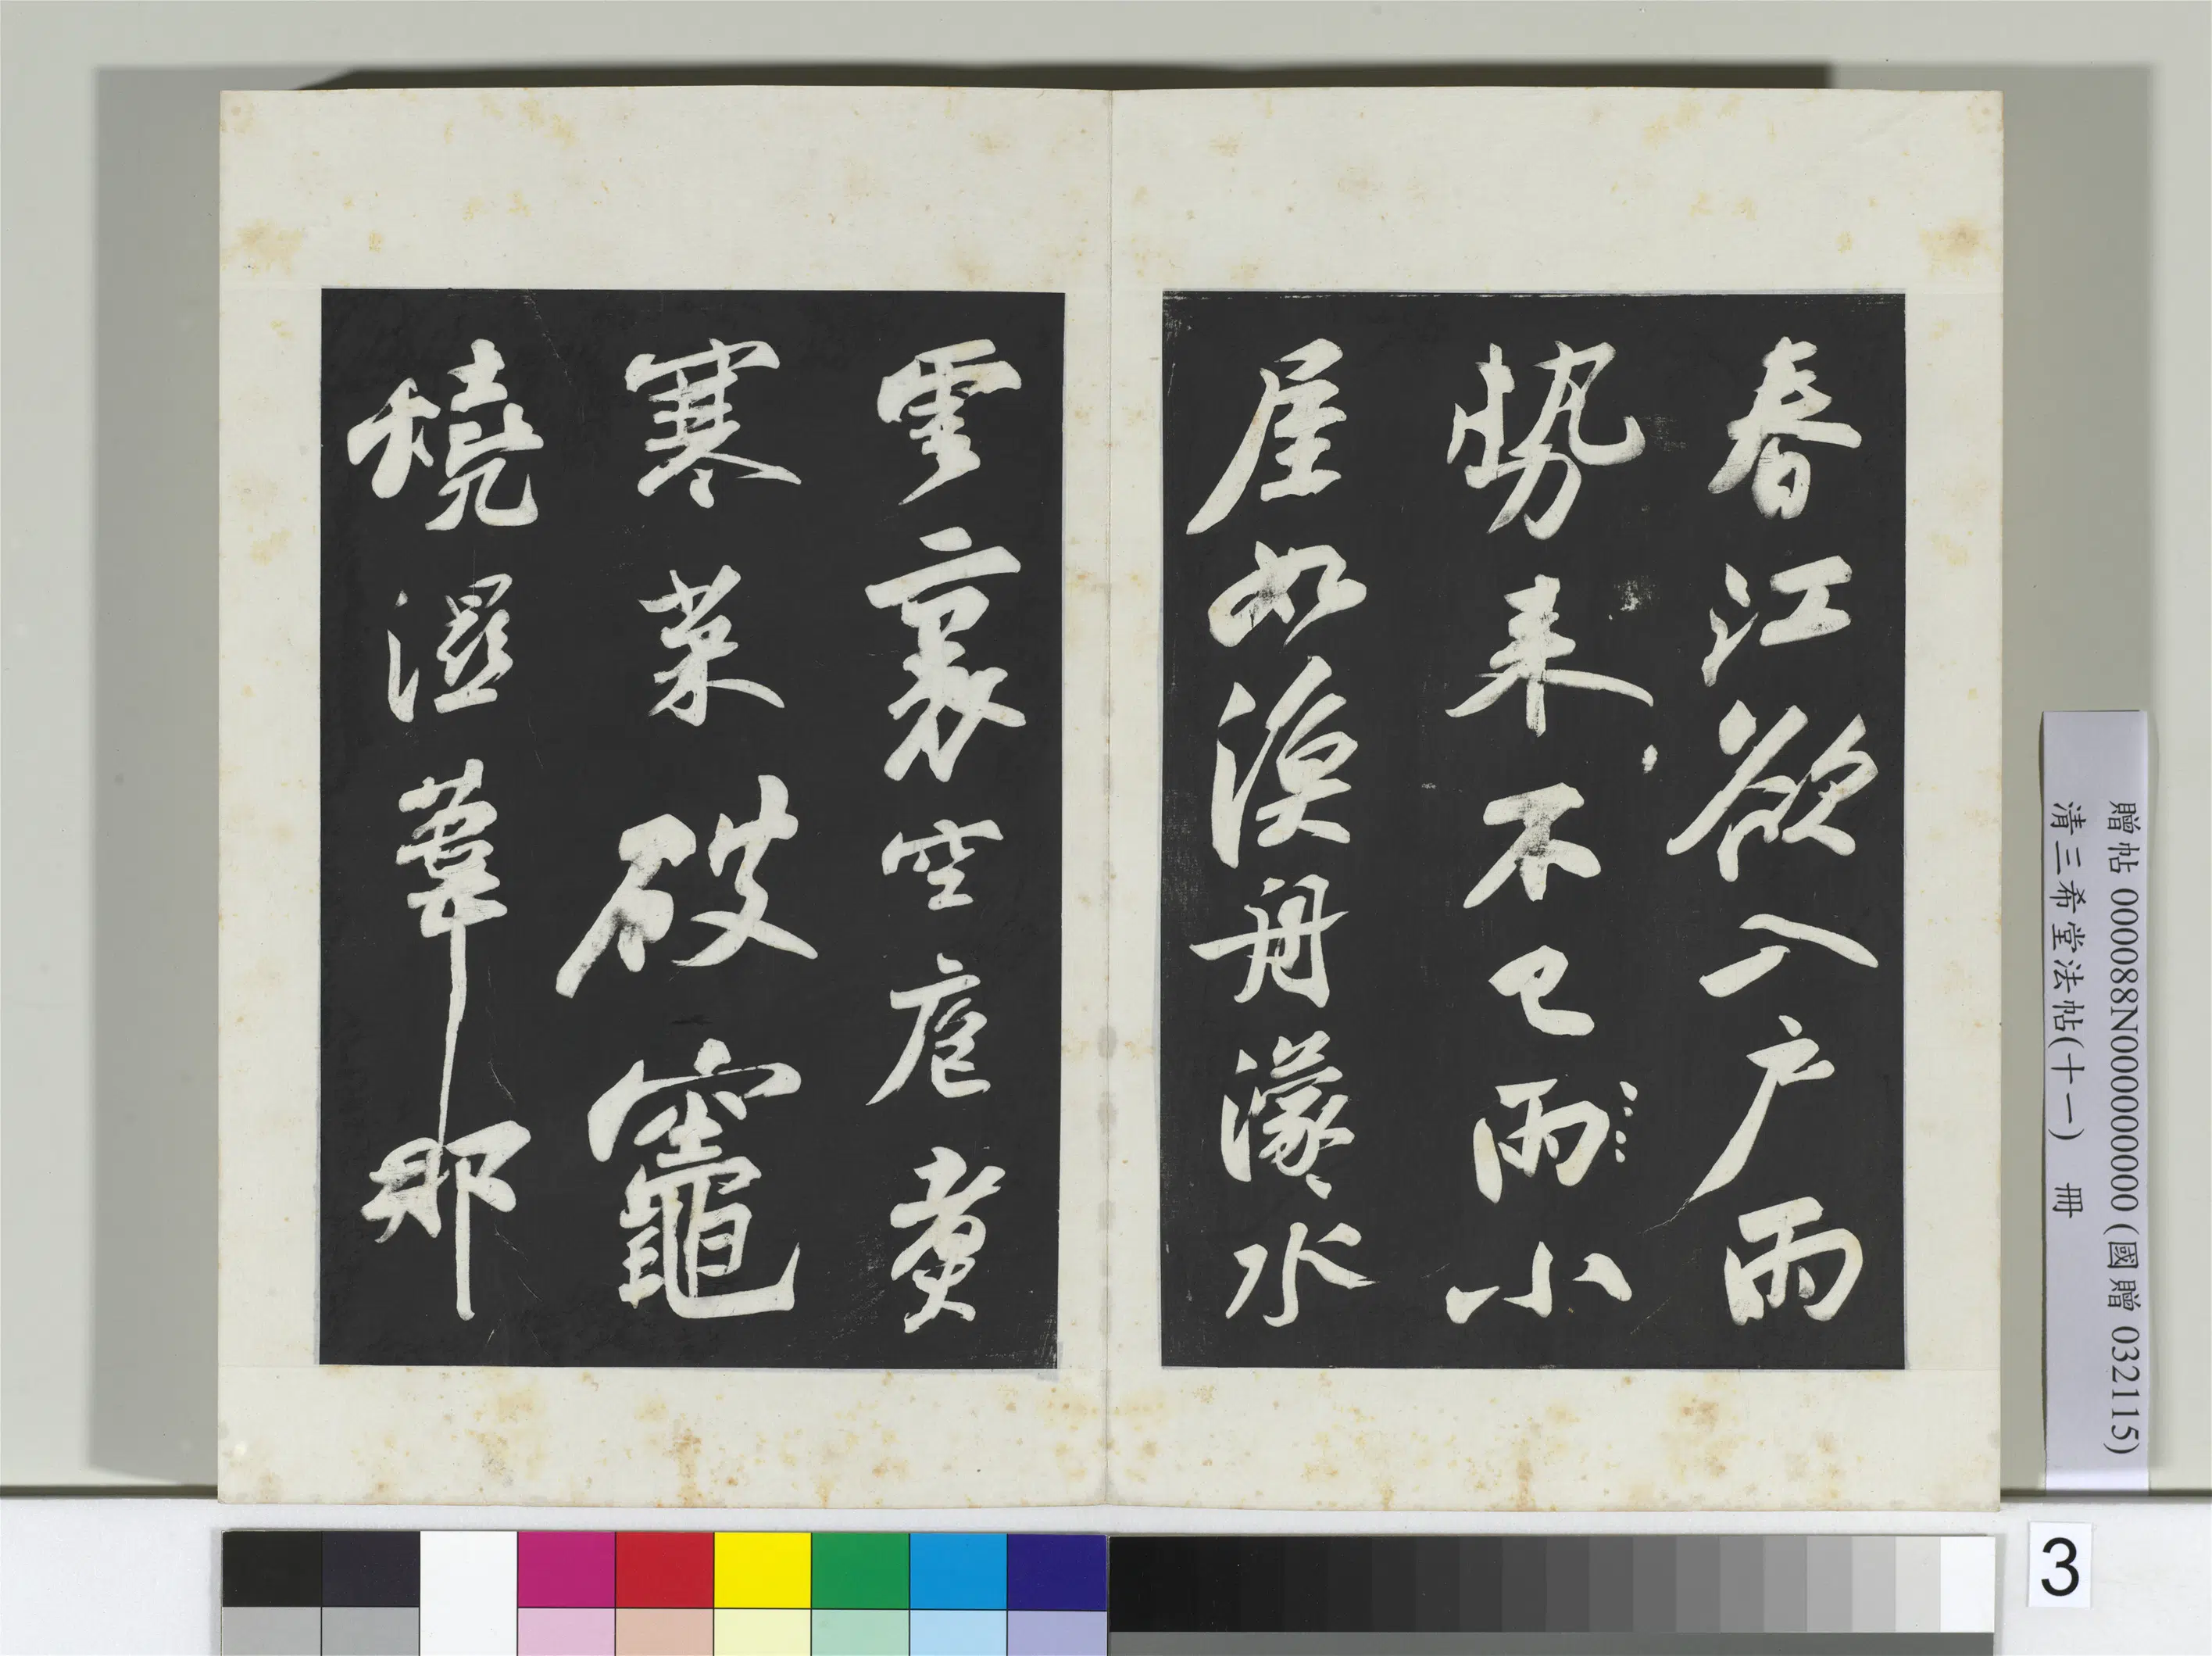 春江欲入戶雨
勢来不已雨小
屋如漁舟濛〻水
雲裏空庖煮
寒菜破竈
燒濕葦那
贈帖 000088N000000000 (國贈 032115)
清三希堂法帖(十一) 冊
3